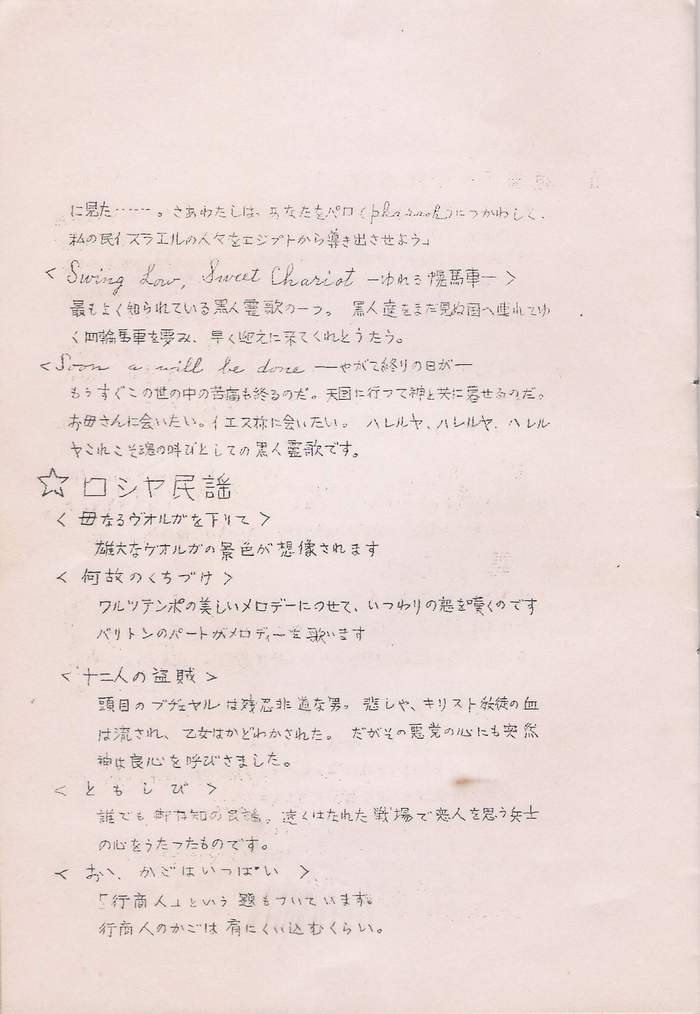 に見た……。さあわたしは、あなたをパロ(pharaoh)につかわし、
私の民イスラエルの人々をエジプトから導き出させよう」
< Swing Low, Sweet Chariot ―ゆれる幌馬車― >
最もよく知られている黒人霊歌の一つ。 黒人達をまだ見ぬ国へ連れてゆ
く四輪馬車を夢み、早く迎えに来てくれとうたう。
< Soon a will be done ―やがて終りの日が―
もうすぐこの世の中の苦痛も終るのだ。天国に行って神と共に暮せるのだ。
お母さんに会いたい。イエス様に会いたい。 ハレルヤ、ハレルヤ、ハレル
ヤこれこそ魂の叫びとしての黒人霊歌です。
☆ ロシヤ民謡
< 母なるヴオルガを下りて >
雄大なヴオルガの景色が想像されます
< 何故のくちづけ >
ワルツテンポの美しいメロデーにのせて、いつわりの恋を嘆くのです
バリトンのパートがメロディーを歌います
< 十二人の盗賊 >
頭目のブヂェヤルは残忍非道な男。悲しや、キリスト教徒の血
は流され、乙女はかどわかされた。 だがその悪党の心にも突然
神は良心を呼びさました。
< ともしび >
誰でも御存知の民謡。遠くはなれた戦場で恋人を思う兵士
の心をうたったものです。
< おゝ、かごはいっぱい >
「行商人」という題もついています。
行商人のかごは肩にくい込むくらい。